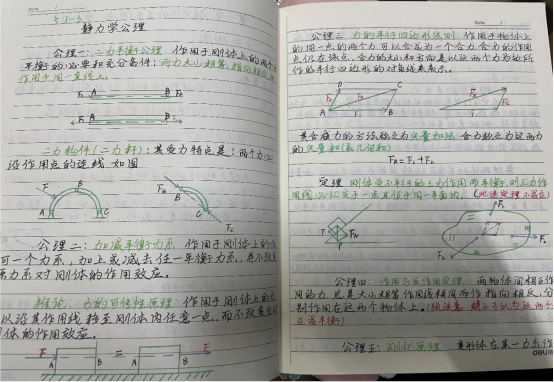 5.1-3
静力学公理
公理一:二力平衡公理 作用于刚体上的两个
平衡的必要和充分条件:两力大小相等,指向相反
作用于同一直线上。
A B
A B
二力构件(二力杆):其受力特点是:两个力必
沿作用点的连线 如图
F B A C
B C
公理二:加减平衡力系 作用于刚体上的任
何一个力系,加上或减去任一平衡力系,并不改变
原力系对刚体的作用效应。
推论:力的可传性原理 作用于刚体上的力
以沿其作用线移至刚体内任意一点,而不改变
体的作用效应。
F A B = A B F
Date.
公理三 力的平行四边形法则 作用于物体上
的同一点的两个力可以合成为一个合力,合力的作用
点仍在该点,合力的大小和方向是以这两个力为边所
作的平行四边形的对角线来表示。
A B C D
其合成力的方法称之为矢量加法,合力称之为这两力
的矢量和(几何和)
FR=F1+F2
定理 刚体受不平行的三力作用而平衡,则三力作用
线必汇交于一点且位于同一平面内。(此逆定理不成立)
公理四:作用与反作用定律 两物体间相互作
用的力总是大小相等作用线相同而作指向相反,分
别作用在这两个物体上。
公理五:刚化原理 变形体在某一力系作
deli